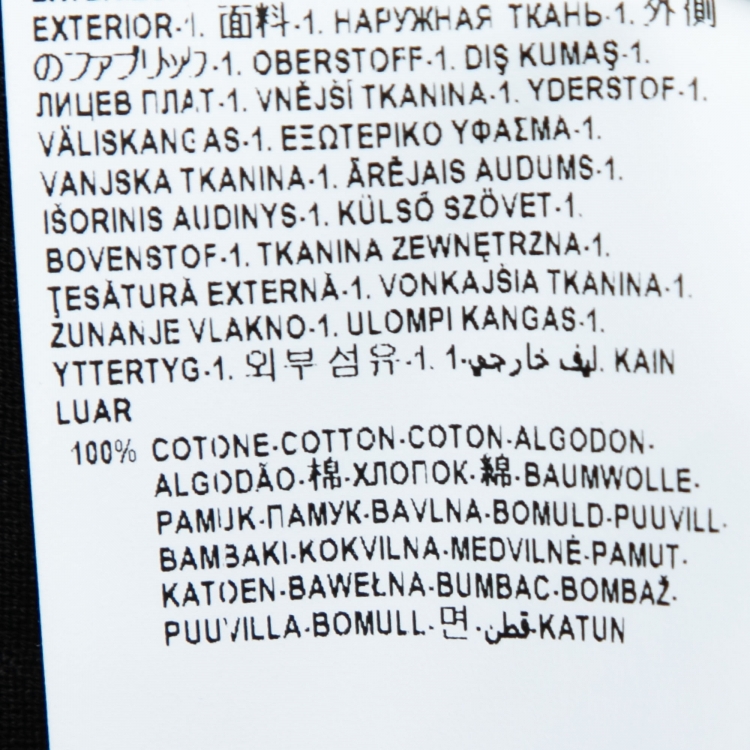 EXTERIOR-1. 面料-1. НАРУЖНАЯ ТКАНЬ-1. 外側
のファブリック-1. OBERSTOFF-1. DIŞ KUMAŞ-1.
ЛИЦЕВ ПЛАТ-1. VNĚJŠÍ TKANINA-1. YDERSTOF-1.
VÄLISKANGAS-1. ΕΞΩΤΕΡΙΚΟ ΥΦΑΣΜΑ-1.
VANJSKA TKANINA-1. ĀRĒJAIS AUDUMS-1.
IŠORINIS AUDINYS-1. KÜLSŐ SZÖVET-1.
BOVENSTOF-1. TKANINA ZEWNĘTRZNA-1.
ŢESĂTURĂ EXTERNĂ-1. VONKAJŠIA TKANINA-1.
ZUNANJE VLAKNO-1. ULOMPI KANGAS-1.
YTTERTYG-1. 외부 섬유-1. 1-ليف خارجي. KAIN
LUAR
100% COTONE-COTTON-COTON-ALGODON-
ALGODÃO-棉-ХЛОПОК-綿-BAUMWOLLE-
PAMUK-ПАМУК-BAVLNA-BOMULD-PUUVILL-
BAMBAKI-KOKVILNA-MEDVILNĖ-PAMUT-
KATOEN-BAWEŁNA-BUMBAC-BOMBAŽ-
PUUVILLA-BOMULL-면-قطن-KATUN